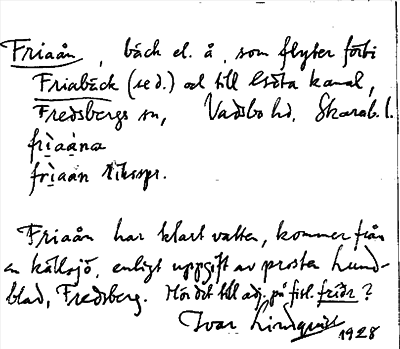 Friaån, bäck el. å, som flyter förbi
Friabäck (se d.) och till Göta kanal,
Fredsbergs sn, Vadsbo hd, Skarab. l.
frìaåna
frìaån riksspr.
Friaån har klart vatten, kommer från
en källsjö, enligt uppgift av prosten Lund-
blad, Fredsberg. Hör det till adj. på fisl. fríðr?
Ivar Lindquist 1928